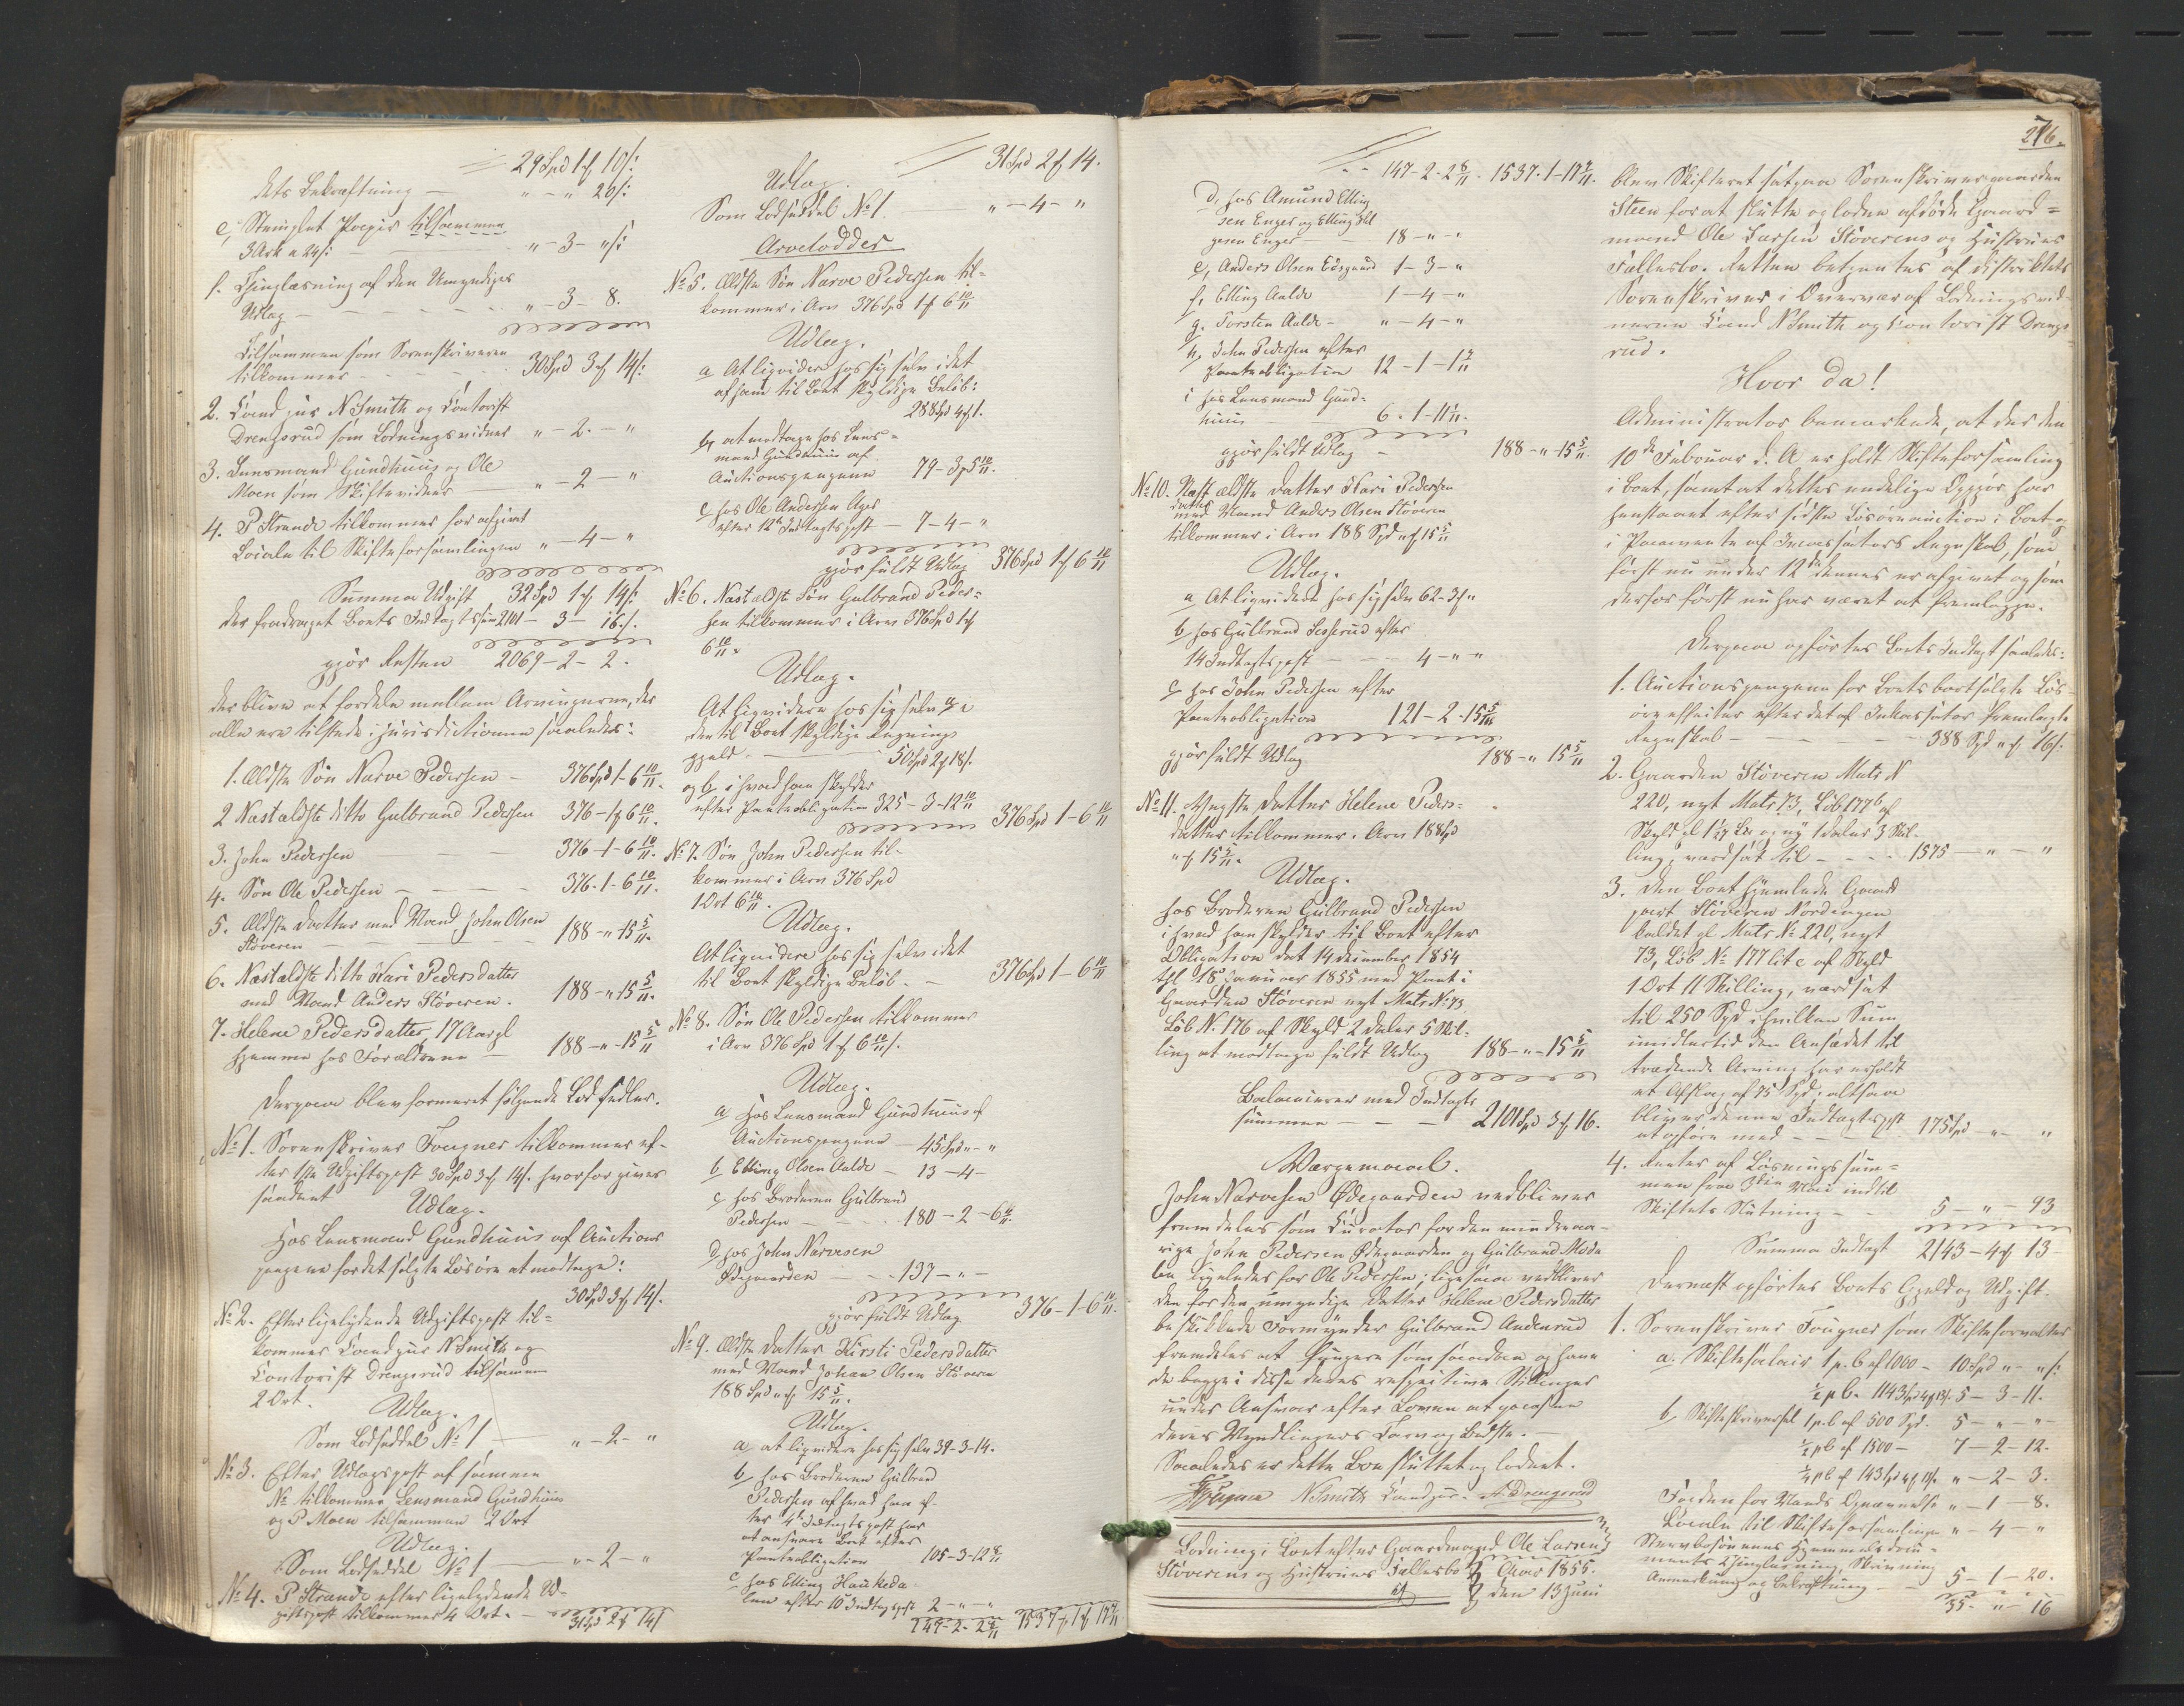 29 Spd 1 ƒ 10 s:
dets Bekræftning — " - " 20 s:
e, Stemplet Papir tilsammen
3 Ark a 24 s: — " - 3 - " s:
f. Thinglæsning af den Umyndiges
Udlæg — " - 3 - 8.
Tilsammen som Sorenskriveren
tilkommer — 30 Spd 3 ƒ 14 s:
2. Cand jur N Smith og Contorist
Drengsrud som Lodningsvidner " - 2 - "
3. Lensmand Gundhuus og Ole
Moen som Skiftevidner " - 2 - "
4. P Strande tilkommer for afgivet
Locale til Skifteforsamlingen " - 4 - "
Summa Udgift 32 Spd 1 ƒ 14 s:
der fradraget Boets Indtægtssum 2101 - 3 - 16 s.
gjør Resten 2069 - 2 - 2.
der bliver at fordele mellem Arvingerne, der
alle ere tilstede i jurisdictionen saaledes:
1. Ældste Søn Narve Pedersen — 376 Spd 1 - 6 10/11.
2 Næstældste ditto Gulbrand Pedersen 376 - 1 ƒ 6 10/11.
3. John Pedersen — 376 - 1 - 6 10/11.
4. Søn Ole Pedersen — 376 - 1 - 6 10/11.
5. Ældste Datter med Mand John Olsen
Støveren — 188 - " 15 5/11.
6. Næstældste ditto Kari Pedersdatter
med Mand Anders Støveren. 188 - " 15 5/11.
7. Helene Pedersdatter, 17 Aar gl
hjemme hos Forældrene — 188 - " - 15 5/11
Derpaa blev formeret følgende Lodsedler.
No 1. Sorenskriver Fougner tilkommer ef-
ter 1ste Udgiftspost 30 Spd 3 ƒ 14 s. hvorfor gives
saadant
Udlæg.
Hos Lensmand Gundhuus af Auctions
pengene for det solgte Løsøre at modtage:
30 Spd 3 ƒ 14 s.
No 2. Efter ligelydende Udgiftspost til-
kommer Cand jur N Smith og
Contorist Drengsrud tilsammen
2 Ort.
Udlæg.
Som Lodseddel No 1 — " - 2 - "
No 3. Efter Udlægspost af samme
No tilkommer Lensmand Gundhuus
og P Moen tilsammen 2 Ort
Udlæg.
Som Lodseddel No 1 — " - 2 - "
No 4. P Strande efter ligelydende Ud-
giftspost tilkommer 4 Ort. —
31 Spd 2 ƒ 14 s
31 Spd 2 ƒ 14.
Udlæg.
Som Lodseddel No 1. " - 4 - "
Arvelodder
No 5. Ældste Søn Narve Pedersen til-
kommer i Arv 376 Spd 1 ƒ 6 10/11
Udlæg.
a At liqvidere hos sig selv i det
af ham til Boet skyldige Beløb:
288 Spd 4 ƒ 1.
b, at modtage hos Lens-
mand Gundhuus af
Auctionspengene 79 - 3 ƒ 5 10/11.
c hos Ole Andersen Ager
efter 12te Indtægtspost — 7 - 4 - "
gjør fuldt Udlæg 376 Spd 1 ƒ 6 10/11
No 6. Næstældste Søn Gulbrand Peder-
sen tilkommer i Arv 376 Spd 1 ƒ
6 10/11.
Udlæg.
At liqvidere hos sig selv a i
den til Boet skyldige Regnings
gjæld — 50 Spd 2 ƒ 18 s.
og b, i hvad han skylder
efter Pantobligation 325 - 3 - 12 10/11 376 Spd 1 - 6 10/11
No 7. Søn John Pedersen til-
kommer i Arv 376 Spd
1 Ort 6 10/11.
Udlæg.
At liqvidere hos sig selv i det
til Boet skyldige Beløb. — 376 Spd 1 - 6 10/11
No 8. Søn Ole Pedersen tilkommer
i Arv 376 Spd 1 ƒ 6 10/11 s.
Udlæg.
a Hos Lensmand Gundhuus af
Auctionspengene — 45 Spd " - "
b Elling Olsen Aalde — 13 - 4 -
c hos Broderen Gulbrand
Pedersen — 180 - 2 - 6 10/11.
d hos John Narvesen
Ødegaarden — 137 - " -
gjør fuldt Udlæg 376 - 1 - 6 10/11.
No 9. Ældste Datter Kirsti Pedersdatter
med Mand Johan Olsen Støveren
188 Spd " ƒ 15 5/11.
Udlæg.
a, at liqvidere hos sig selv 39 - 3 - 14.
b, hos Broderen Gulbrand
Pedersen af hvad han ef-
ter 4de Indtægtspost har
at ansvare Boet efter
Pantobligation 105 - 3 - 12
c hos Elling Haukeda-
len efter 10 Indtægtspost 2 - " - "
147 - 2 - 2 1537 - 1 ƒ 17
147 - 2 - 2 - 1537 - 1 - 17
d, hos Amund Elling
sen Enger og Elling Hel
gesen Enger — 18 - " - "
e, Anders Olsen Eidsgaard 1 - 3 - "
f, Elling Aalde 1 - 4 - "
g. Torsten Aalde - " - 4 - "
h, John Pedersen efter
Pantobligation 12 - 1 - 1
i hos Lensmand Gund-
huus — 6 - 1 - 11
gjør fuldt Udlæg — 188 - " 15 5/11.
No 10. Næst ældste Datter Kari Pedersen
datter
med Mand Anders Olsen Støveren
tilkommer i Arv 188 Spd " ƒ 15 5/11
Udlæg.
a At liqvidere hos sig selv 62 - 3 ƒ "
b hos Gulbrand Lesserud efter
14 Indtægtspost — 4 - " "
c hos John Pedersen efter
Pantobligation 121 - 2 - 15 5/11
gjør fuldt Udlæg 188 - " 15 5/11
No 11. Yngste Datter Helene Peders-
datter tilkommer i Arv 188 Spd
" ƒ 15 5/11.
Udlæg.
hos Broderen Gulbrand Pedersen
i hvad han skylder til Boet efter
Obligation dat 14 December 1854
tgl 18 Januar 1855 med Pant i
Gaarden Støveren nyt Matr No 73
Løb N. 176 af Skyld 2 Daler 5 Skil-
ling at modtage fuldt Udlæg 188 - " - 15 5/11
Balancerer med Indtægts
summen — 2101 Spd 3 ƒ 16.
Værgemaal.
John Narvesen Ødegaarden vedbliver
fremdeles som Curator for den mindreaa-
rige John Pedersen Ødegaarden og Gulbrand Moda
len ligeledes for Ole Pedersen; ligesaa vedbliver
den for den umyndige Datter Helene Pedersdatter
beskikkede Formynder Gulbrand Andenrud
fremdeles at fungere som saadan og have
de begge i disse deres respective Stillinger
under Ansvar efter Loven at paasee
deres Myndlingers Tarv og Bedste. —
Saaledes er dette Boe sluttet og loddet.
Fougner N Smith Cand jur. A. Drengsrud
Lodning i Boet efter Gaardmand Ole Larsen
Støverens og Hustrues Fællesbo Aar 1855.
den 13 Juni
276.
blev Skifteret sat paa Sorenskrivergaarden
Steen for at slutte og lodde afdøde Gaard-
mand Ole Larsen Støverens og Hustrues
Fællesbo. Retten betjentes af Distriktets
Sorenskriver i Overvær af Lodningsvid-
nerne Cand N Smith og Contorist Drengs
rud.
Hvor da!
Administrator bemærkede, at der den
10de Februar d. A er holdt Skifteforsamling
i Boet, samt at dettes endelige Opgjør har
henstaaet efter sidste Løsøreauction i Boet og
i Paavente af Incassators Regnskab, som
først nu under 12te dennes er afgivet og som
derfor først nu har været at fremlægge.
Derpaa opførtes Boets Indtægt saaledes:
1. Auctionspengene for Boets bortsolgte Løs-
øreeffecter efter det af Inkassator fremlagte
Regnskab — 388 Spd " ƒ 16 s.
2. Gaarden Støveren Matr N
220, nyt Matr 73, Løb 177 b af
Skyld gl og ny 1 Daler 3 Skil-
ling; værdsat til — 1575 — " — "
3. Den Boet hjemlede Gaard
part Støveren Nordengen
kaldet gl Matr No 220, nyt
73, Løb No 177 lit c af Skyld
1 Ort 11 Skilling, værdsat
til 250 Spd i hvilken Sum
imidlertid den Ansædet til
trædende Arving har erholdt
et Afslag af 75 Spd: altsaa
bliver denne Indtægtspost
at opføre med — 175 Spd — " — "
4. Renter af Løsningssum-
men fra 3die Mai indtil
Skiftets Slutning — 5 - " - 93
Summa Indtægt 2143 - 4 ƒ 13
Dernæst opførtes Boets Gjæld og Udgift.
1. Sorenskriver Fougner som Skifteforvalter
a. Skiftesalair 1 p. C af 1000 — 10 Spd " - " s:
½ p C. 1143 Spd 4 ƒ 13 s. 5 - 3 - 11.
b, Skifteskriversal 1 p. C af 500 Spd. 5 - " - "
½ p C af 1500 — 7 - 2 - 12.
¼ p C af 143 Spd 4 ƒ 13 s. " - 2 - 3.
Fordeel for Mands Opnævnelse " - 1 - 8.
Locale til Skifteforsamlingen " - 4 - "
Stervbosønnens Hjemmelsdocu-
ments Thinglæsning, Skrivning
Anmærkning og Bekræftning — 5 - 1 - 20.
35. " - 16